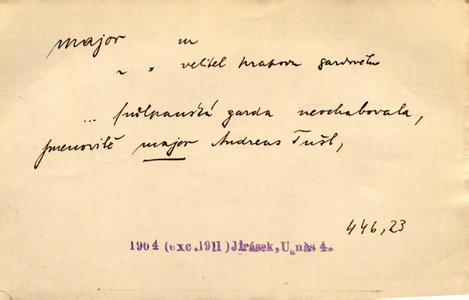 major m
" " velitel praporu gardového
... fülpanská garda neochabovala,
jmenovitě major Andreas Tušl,
446,23
1904 (exc.1911) Jirásek, U nás 4.